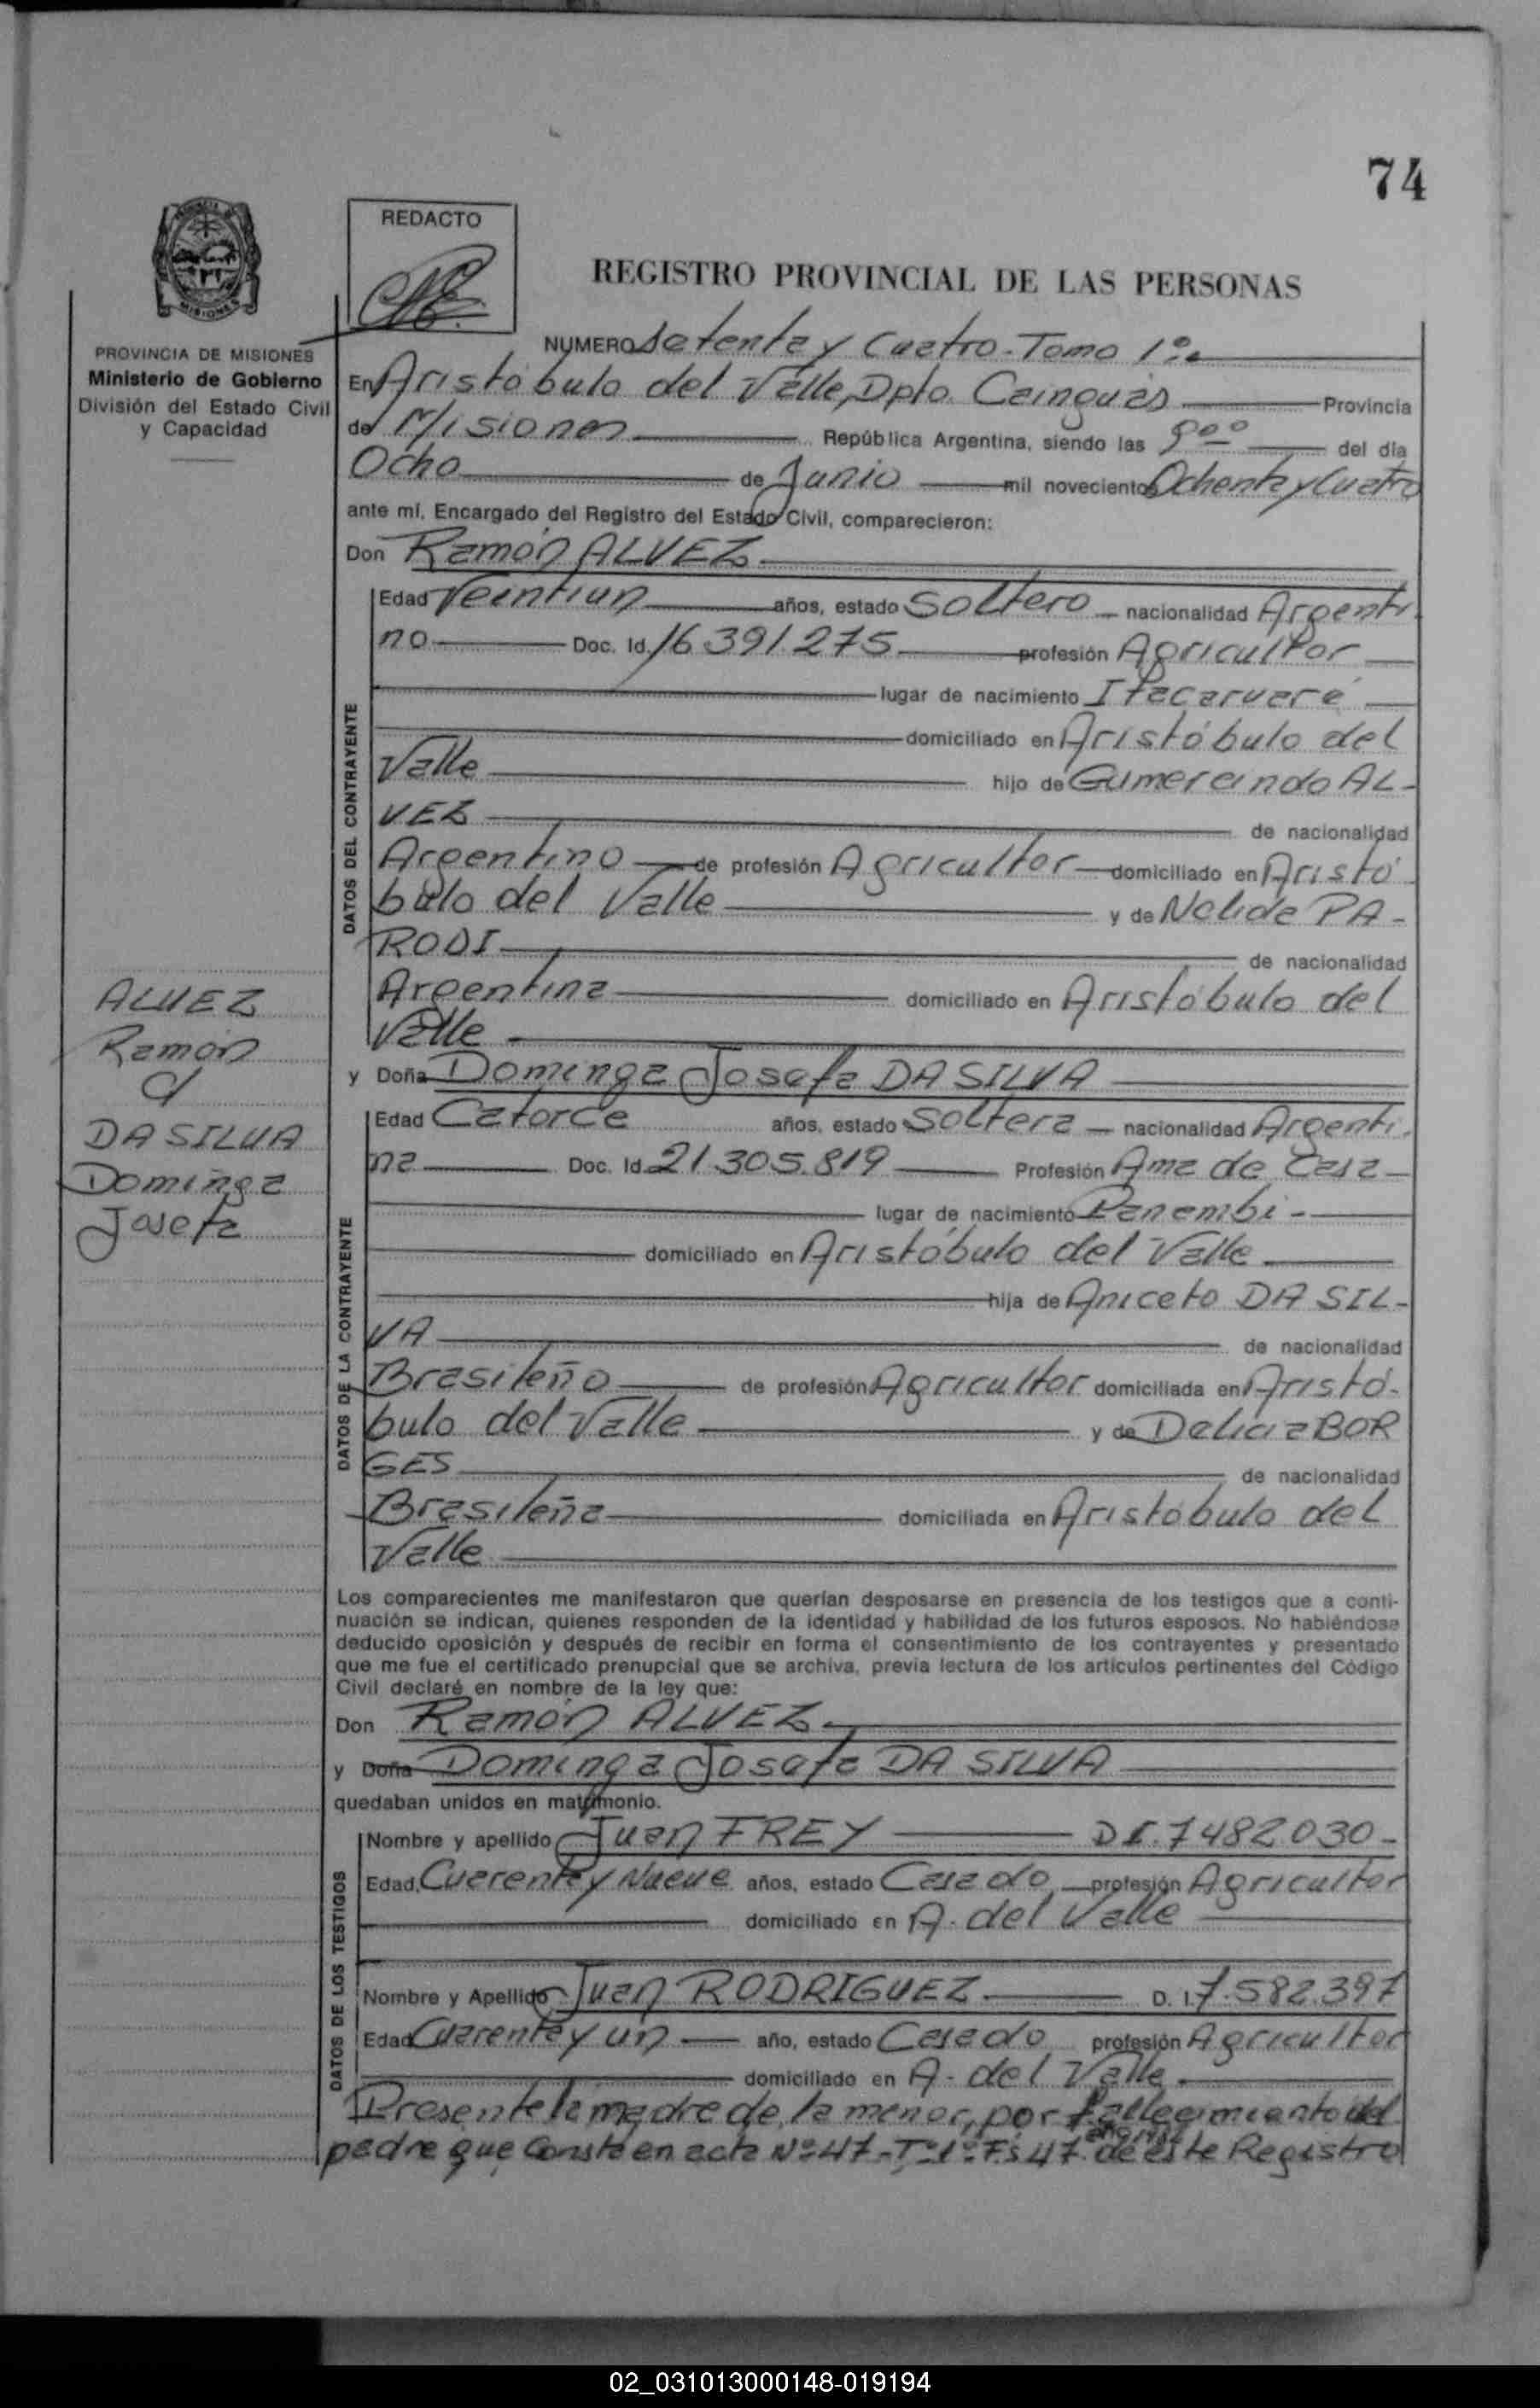 74
REDACTO
REGISTRO PROVINCIAL DE LAS PERSONAS
MISIONES
PROVINCIA DE MISIONES
Ministerio de Gobierno
División del Estado Civil
y Capacidad
NUMERO Setenta y Cuatro - Tomo 1º
En Aristóbulo del Valle, Dpto. Cainguás Provincia
de Misiones República Argentina, siendo las 9:00 del día
Ocho de Junio mil novecientos Ochenta y Cuatro
ante mí, Encargado del Registro del Estado Civil, comparecieron:
Don Ramón ALVEZ
DATOS DEL CONTRAYENTE
Edad Veintiun años, estado Soltero nacionalidad Argenti-
no Doc. Id. 16.391.275 profesión Agricultor
lugar de nacimiento Itacaruaré
domiciliado en Aristóbulo del
Valle hijo de Gumercindo AL-
VEZ de nacionalidad
Argentino de profesión Agricultor domiciliado en Aristó
bulo del Valle y de Nelida PA-
RODI de nacionalidad
Argentina domiciliado en Aristóbulo del
Valle
ALVEZ
Ramón
c/
DA SILVA
Dominga
Josefa
y Doña Dominga Josefa DA SILVA
DATOS DE LA CONTRAYENTE
Edad Catorce años, estado Soltera nacionalidad Argenti-
na Doc. Id. 21.305.819 Profesión Ama de Casa
lugar de nacimiento Panambi
domiciliado en Aristóbulo del Valle
hija de Aniceto DA SIL-
VA de nacionalidad
Brasileño de profesión Agricultor domiciliada en Aristó-
bulo del Valle y de Delicia BOR
GES de nacionalidad
Brasileña domiciliada en Aristóbulo del
Valle
Los comparecientes me manifestaron que querían desposarse en presencia de los testigos que a conti-
nuación se indican, quienes responden de la identidad y habilidad de los futuros esposos. No habiéndose
deducido oposición y después de recibir en forma el consentimiento de los contrayentes y presentado
que me fue el certificado prenupcial que se archiva, previa lectura de los artículos pertinentes del Código
Civil declaré en nombre de la ley que:
Don Ramón ALVEZ
y Doña Dominga Josefa DA SILVA
quedaban unidos en matrimonio.
DATOS DE LOS TESTIGOS
Nombre y apellido Juan FREY D I. 7482030
Edad, Cuarenta y Nueve años, estado Casado profesión Agricultor
domiciliado en A. del Valle
Nombre y Apellido Juan RODRIGUEZ D. I. 7.582.397
Edad Cuarenta y un año, estado Casado profesión Agricultor
domiciliado en A. del Valle
Presente la madre de la menor, por fallecimiento del
padre que consta en acta Nº 47 - Tº 1º Fs 47 de este Registro
02_031013000148-019194